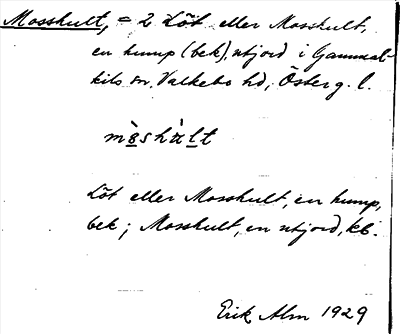 Mosshult, = 2 Löt eller Mosshult,
en hump (bek), utjord i Gammal-
kils sn, Valkebo hd, Österg. l.
Löt eller Mosshult, en hump,
bek; Mosshult, en utjord, kb.
Erik Alm 1929